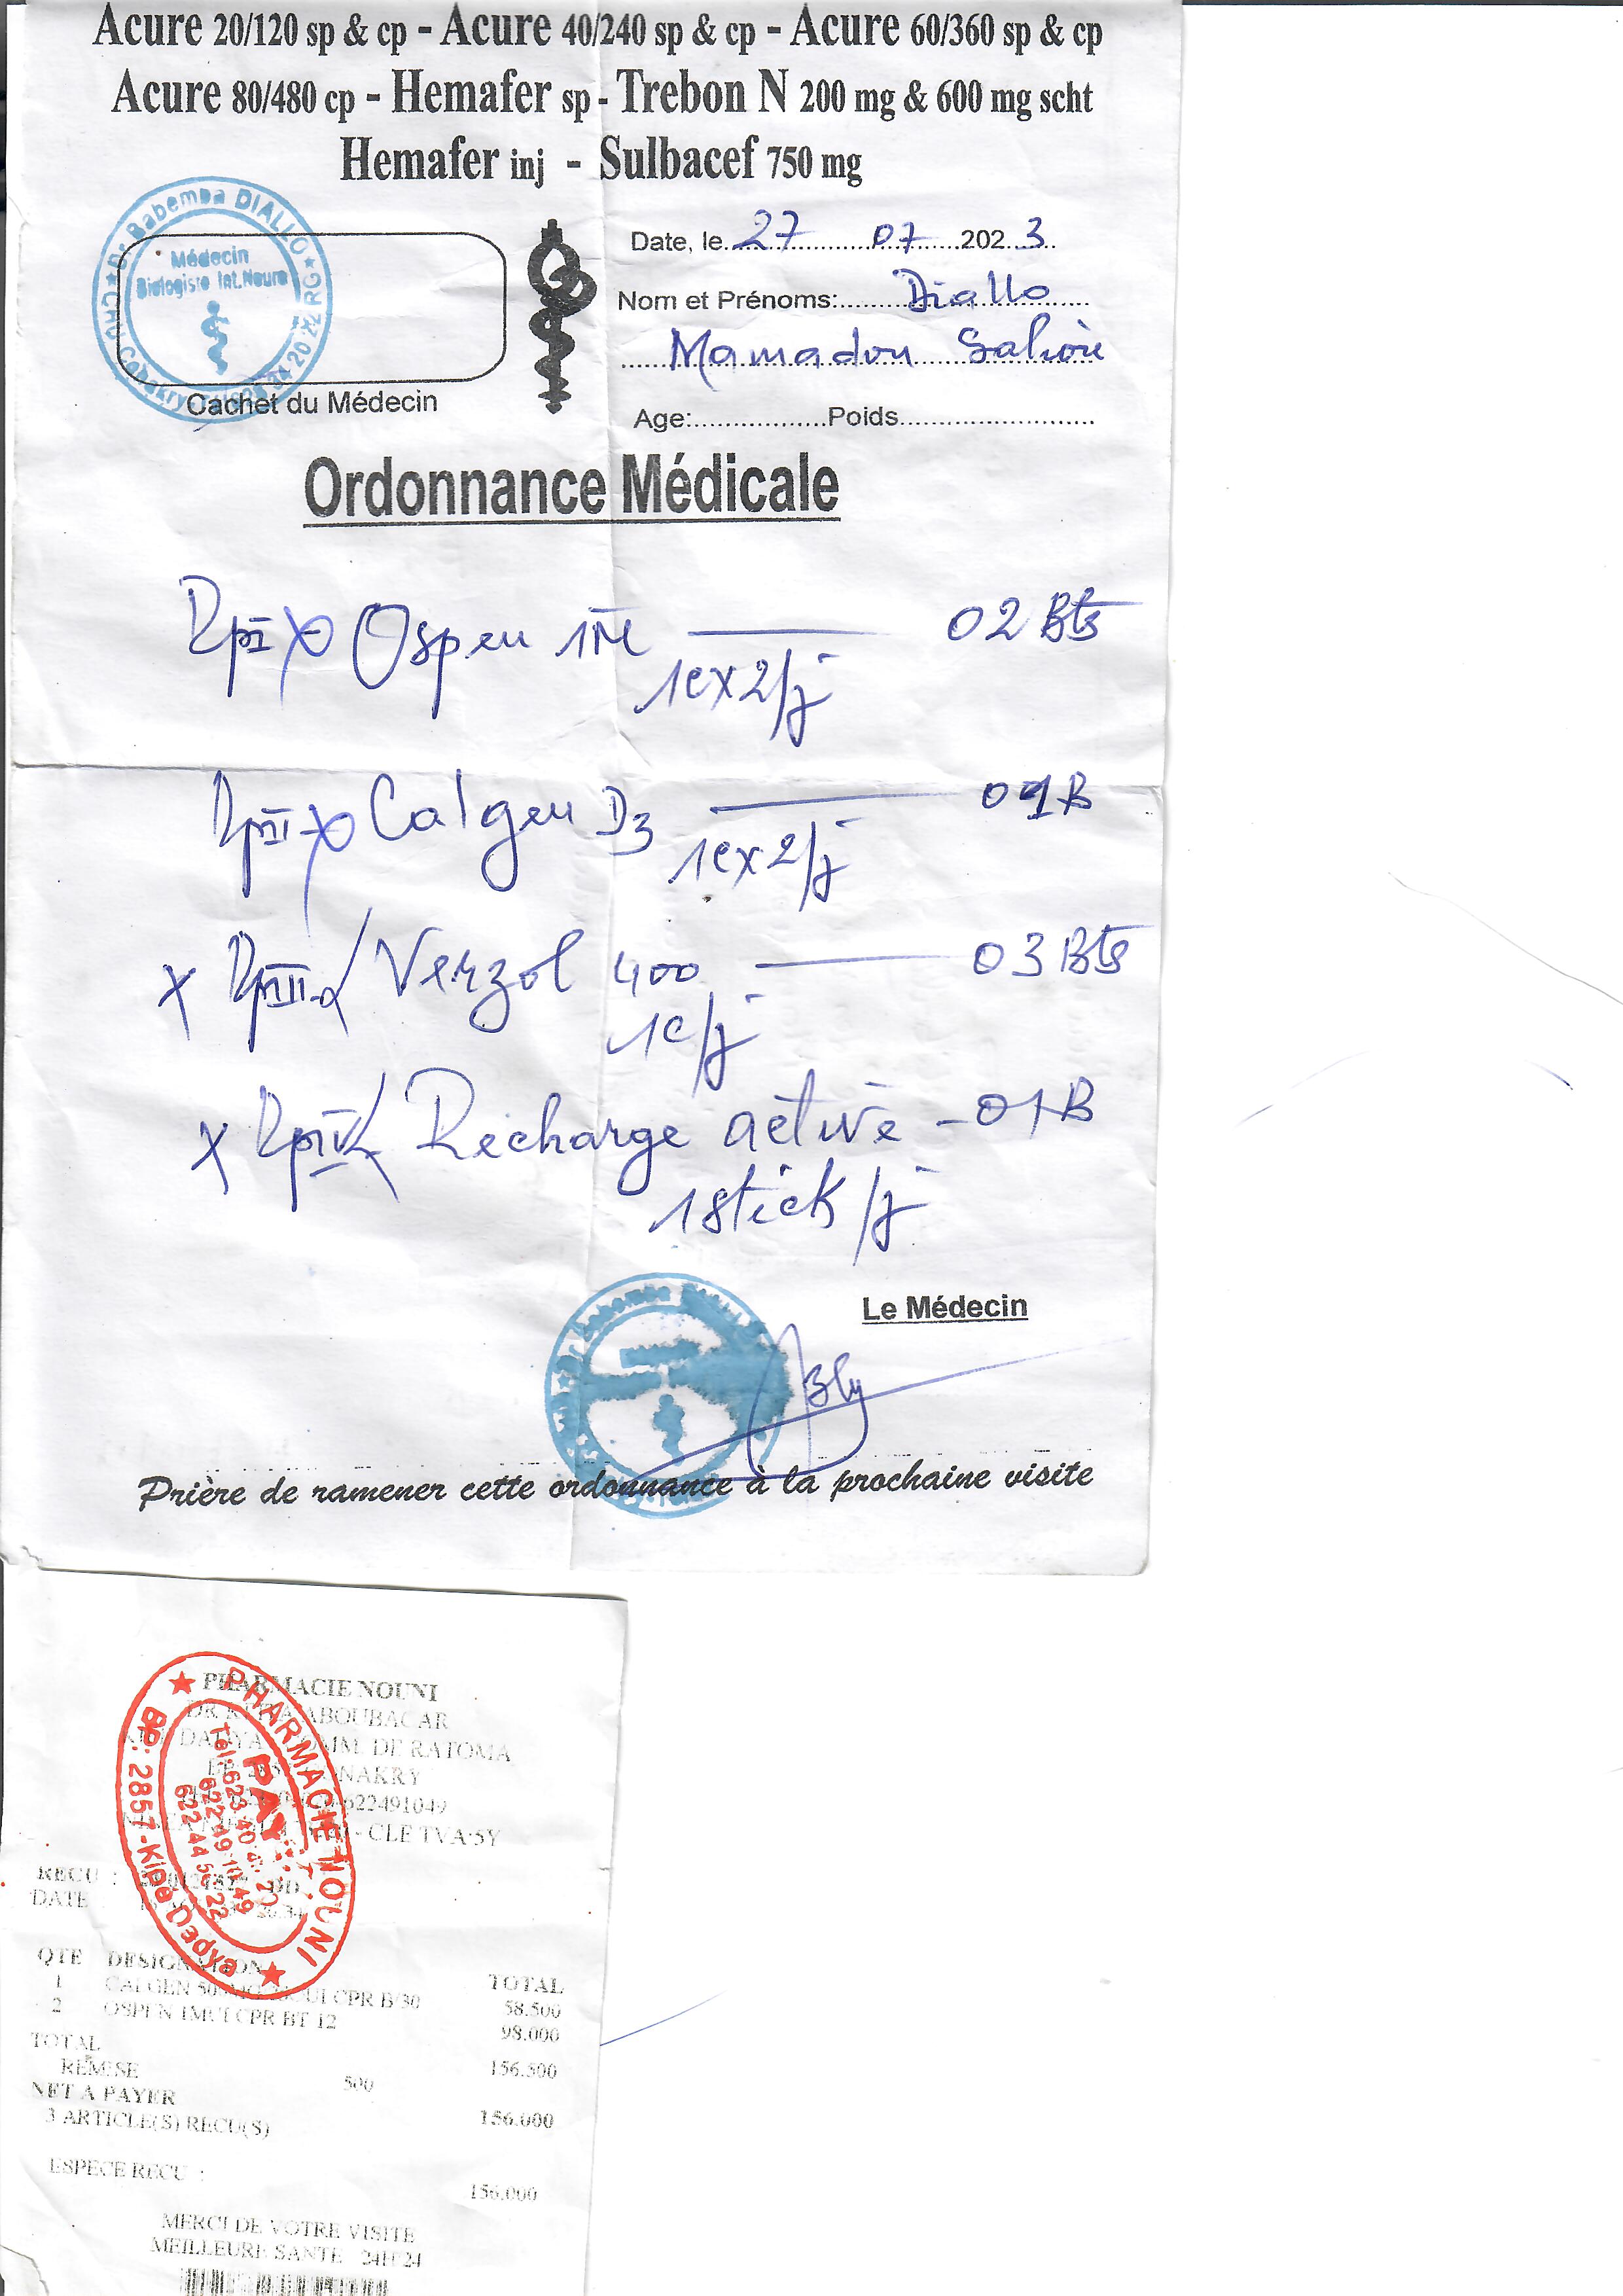 Acure 20/120 sp & cp - Acure 40/240 sp & cp - Acure 60/360 sp & cp
Acure 80/480 cp - Hemafer sp - Trebon N 200 mg & 600 mg scht
Hemafer inj - Sulbacef 750 mg
Dr Babemba DIALLO
Médecin
Biologiste Int. Neuro
Cachet du Médecin
Date, le 27 07 2023
Nom et Prénoms: Diallo
Mamadou Saliou
Age:..................Poids.........................
Ordonnance Médicale
RpI Ospen 1M 02 Bts
1c x 2/j
RpII Calgen D3 01 B
1c x 2/j
x RpIII Verzol 400 03 Bts
1c/j
x RpIV Recharge active - 01 B
1 stick/j
Le Médecin
Prière de ramener cette ordonnance à la prochaine visite
PHARMACIE NOUNI
ABOUBACAR
DE RATOMA
622491049
- CLE TVA:5Y
PHARMACIE NOUNI
BP: 2857 - Kipé Dadya
RECU :
DATE
QTE DESIGNATION TOTAL
1 CALGEN CPR B/30 58.500
2 OSPEN 1MUI CPR BT 12 98.000
TOTAL 156.500
REMISE 500
NET A PAYER 156.000
3 ARTICLE(S) RECU(S)
ESPECE RECU : 156.000
MERCI DE VOTRE VISITE
MEILLEURE SANTE 24H/24